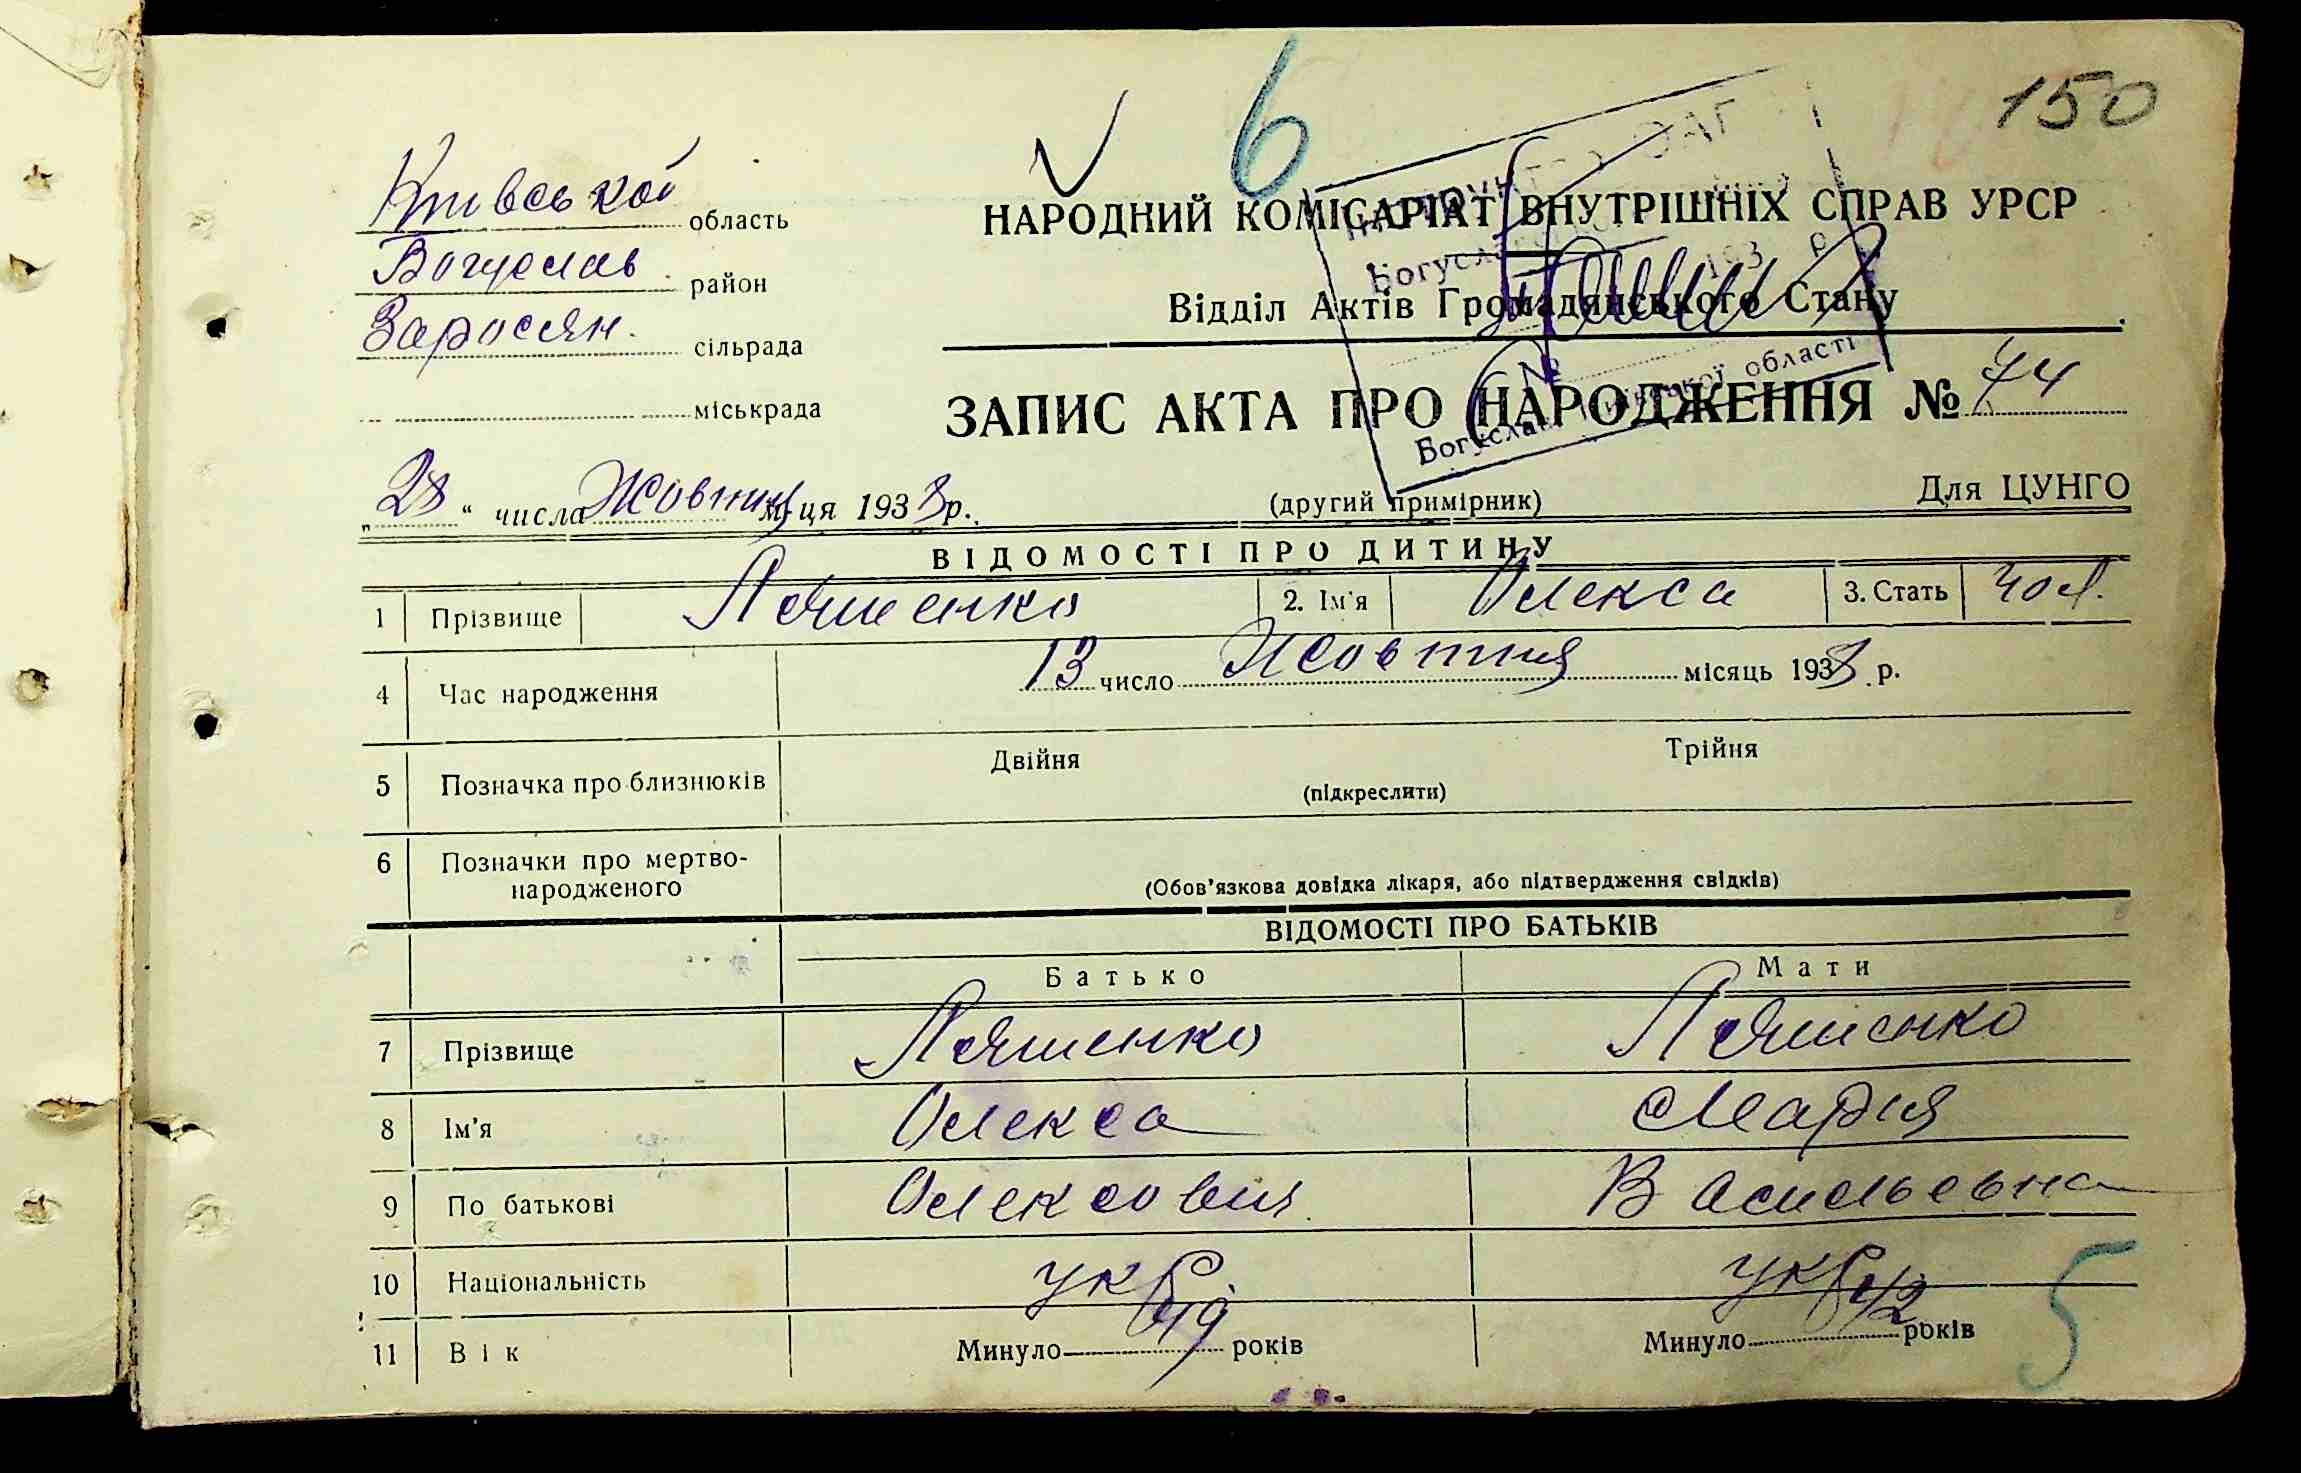 150
6
Київської область
Богуслав район
Заросян. сільрада
міськрада
НАРОДНИЙ КОМІСАРІАТ ВНУТРІШНІХ СПРАВ УРСР
Відділ Актів Громадянського Стану
ЗАПИС АКТА ПРО НАРОДЖЕННЯ № 74
„28“ числа Жовтня м-ця 1938 р.
(другий примірник)
Для ЦУНГО
ВІДОМОСТІ ПРО ДИТИНУ
1 Прізвище Ляшенко 2. Ім'я Олекса 3. Стать чол.
4 Час народження 13 число Жовтня місяць 1938 р.
5 Позначка про близнюків Двійня Трійня
(підкреслити)
6 Позначки про мертво-
народженого
(Обов'язкова довідка лікаря, або підтвердження свідків)
ВІДОМОСТІ ПРО БАТЬКІВ
Батько Мати
7 Прізвище Ляшенко Ляшенко
8 Ім'я Олекса Марія
9 По батькові Олексович Васильевна
10 Національність укр укр
11 Вік Минуло років Минуло років
5